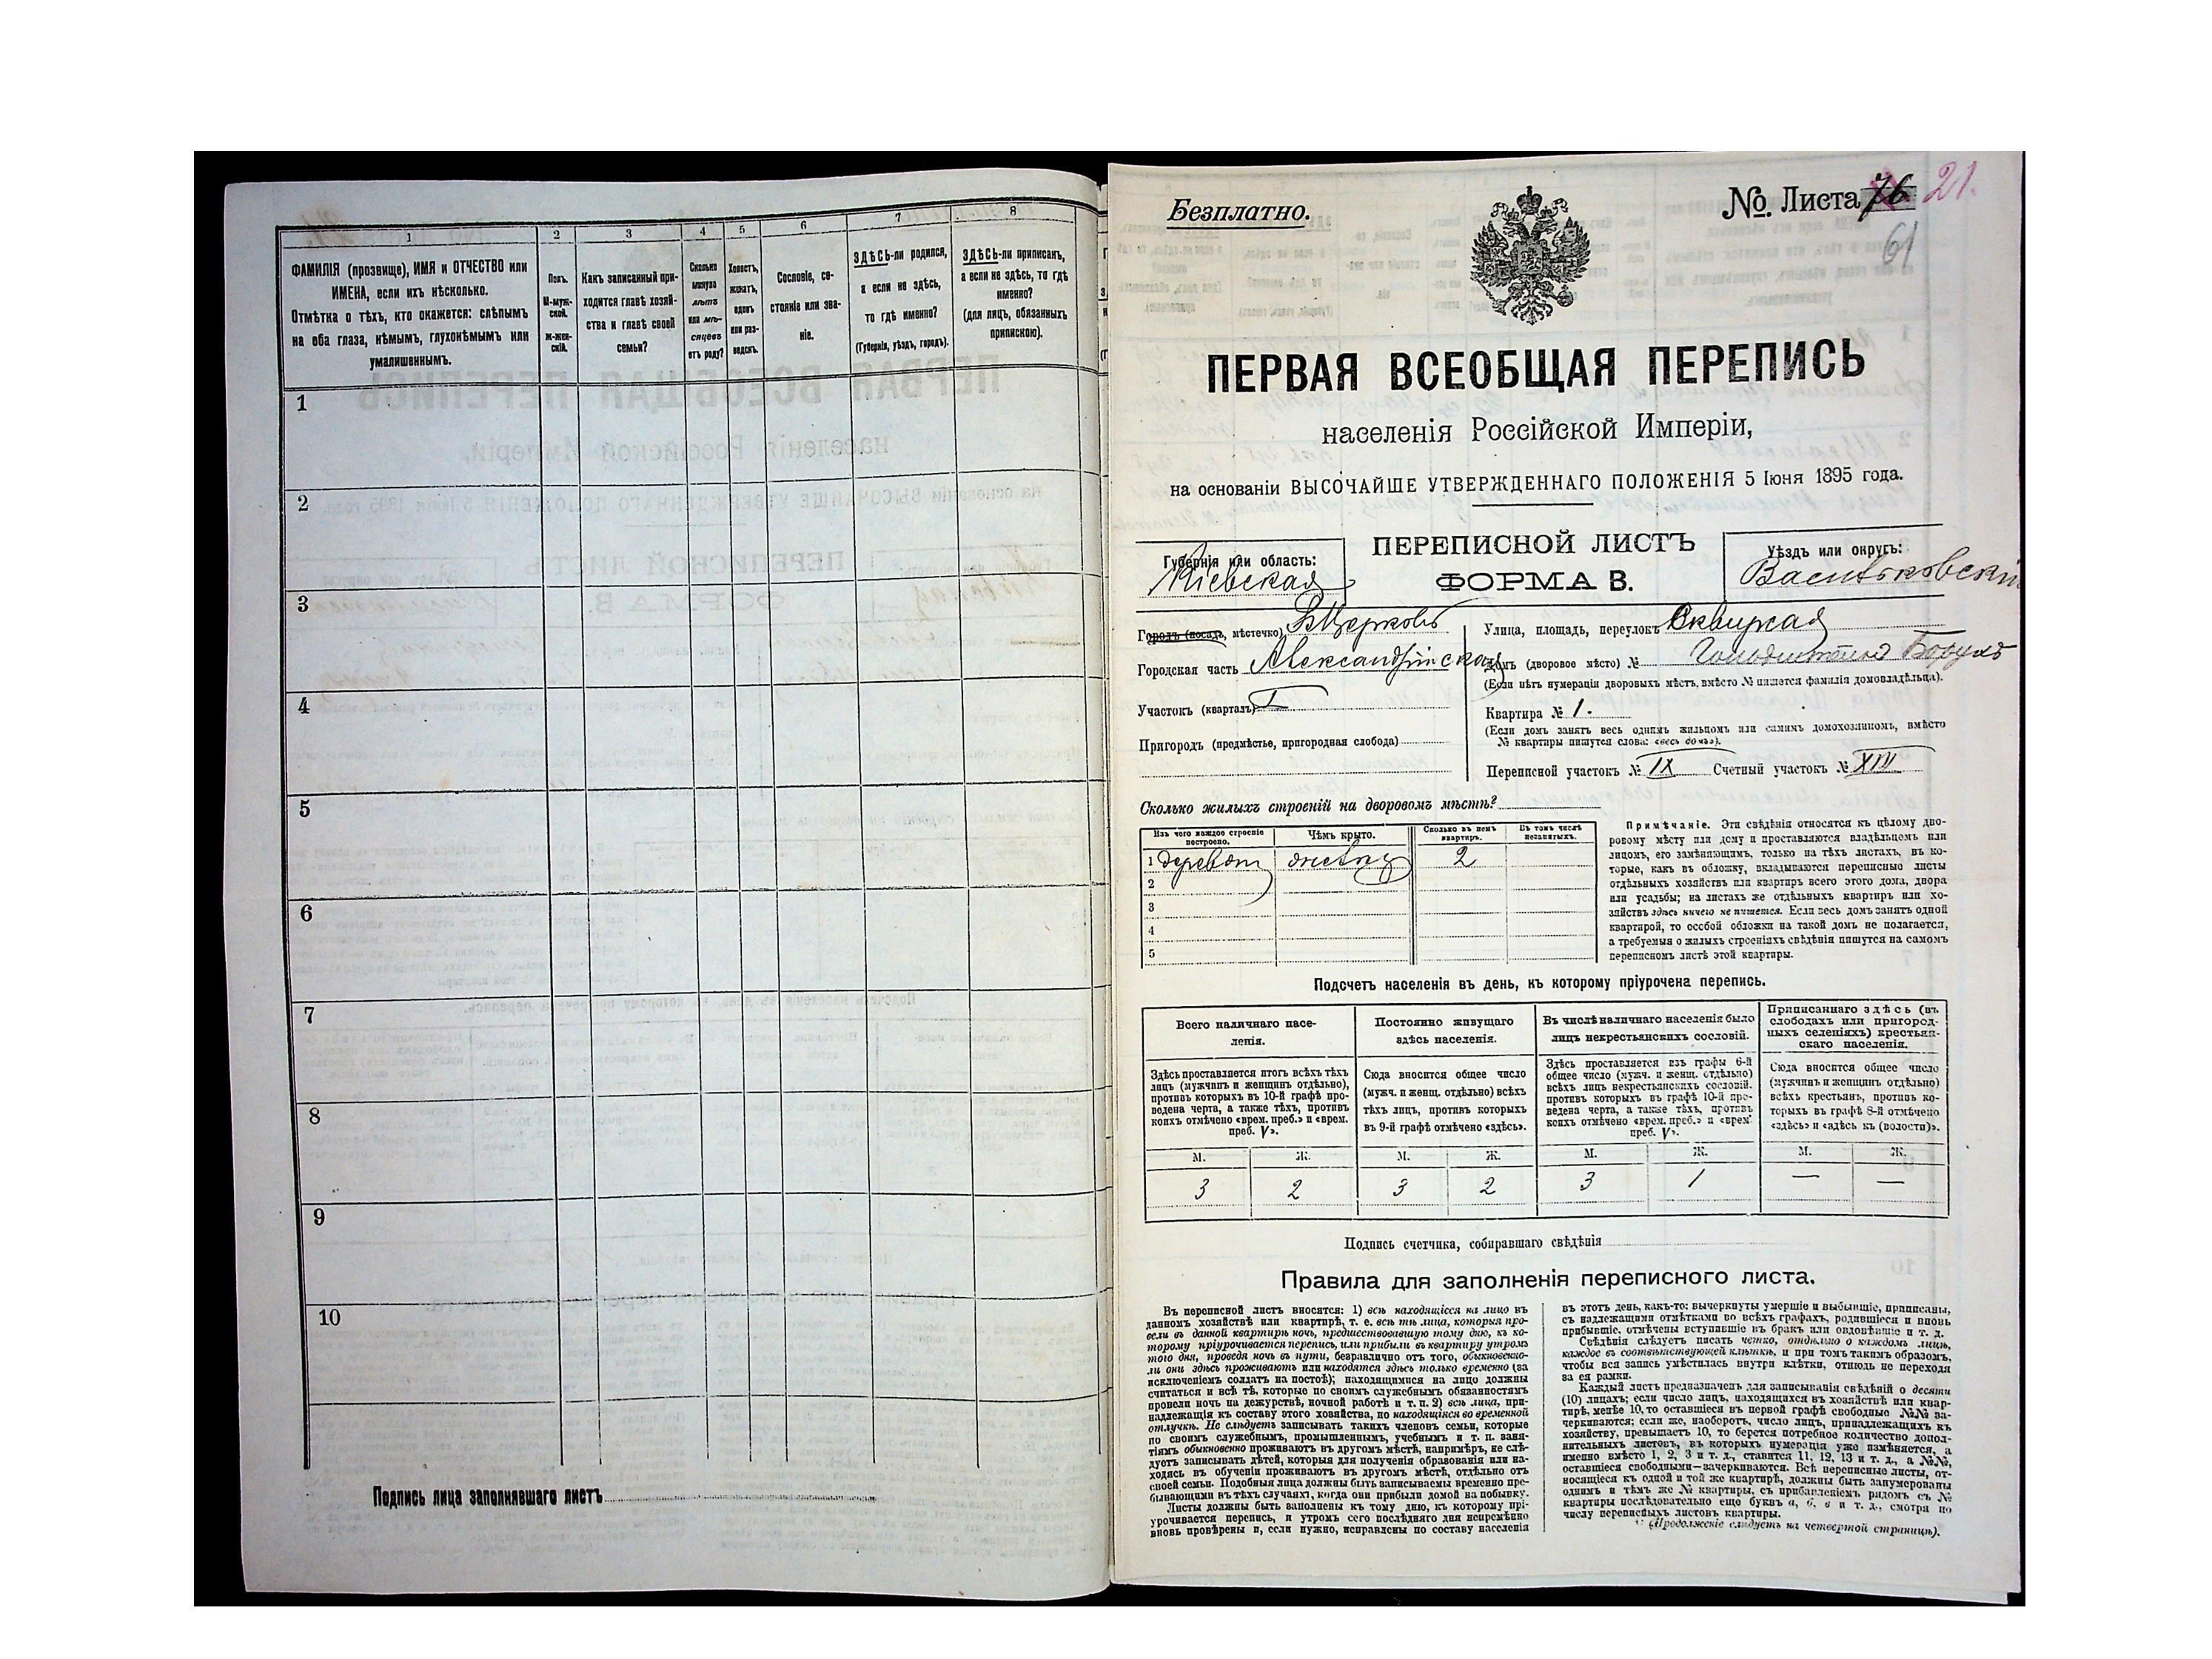 1
ФАМИЛІЯ (прозвище), ИМЯ и ОТЧЕСТВО или
ИМЕНА, если ихъ нѣсколько.
Отмѣтка о тѣхъ, кто окажется: слѣпымъ
на оба глаза, нѣмымъ, глухонѣмымъ или
умалишеннымъ.
2
Полъ.
М-муж-
ской.
Ж-жен-
скій.
3
Какъ записанный при-
ходится главѣ хозяй-
ства и главѣ своей
семьи?
4
Сколько
минуло
лѣтъ
или мѣ-
сяцевъ
отъ роду?
5
Холостъ,
женатъ,
вдовъ
или раз-
ведсъ.
6
Сословіе, со-
стояніе или зва-
ніе.
7
ЗДѢСЬ-ли родился,
а если не здѣсь,
то гдѣ именно?
(Губернія, уѣздъ, городъ).
8
ЗДѢСЬ-ли приписанъ,
а если не здѣсь, то гдѣ
именно?
(для лицъ, обязанныхъ
припискою).
1
2
3
4
5
6
7
8
9
10
Подпись лица заполнявшаго листъ
Безплатно.
№. Листа 76 21.
61
ПЕРВАЯ ВСЕОБЩАЯ ПЕРЕПИСЬ
населенія Россійской Имперіи,
на основаніи ВЫСОЧАЙШЕ УТВЕРЖДЕННАГО ПОЛОЖЕНІЯ 5 Іюня 1895 года.
Губернія или область:
Кіевская
ПЕРЕПИСНОЙ ЛИСТЪ
ФОРМА В.
Уѣздъ или округъ:
Васильковскій
Городъ (посадъ, мѣстечко) Б Церковь
Городская часть Александрійская
Участокъ (кварталъ) I
Пригородъ (предмѣстье, пригородная слобода)
Улица, площадь, переулокъ Сквирская
Домъ (дворовое мѣсто) № Гольдштейнъ Борухъ
(Если нѣтъ нумераціи дворовыхъ мѣстъ, вмѣсто № пишется фамилія домовладѣльца).
Квартира № 1.
(Если домъ занятъ весь однимъ жильцомъ или самимъ домохозяиномъ, вмѣсто
№ квартиры пишутся слова: «весь домъ»).
Переписной участокъ № IX Счетный участокъ № XIII
Сколько жилыхъ строеній на дворовомъ мѣстѣ?
Изъ чего каждое строеніе
построено.
Чѣмъ крыто.
Сколько въ немъ
квартиръ.
Въ томъ числѣ
незанятыхъ.
1 2
2
3
4
5
Примѣчаніе. Эти свѣдѣнія относятся къ цѣлому дво-
ровому мѣсту или дому и проставляются владѣльцемъ или
лицомъ, его замѣняющимъ, только на тѣхъ листахъ, въ ко-
торые, какъ въ обложку, вкладываются переписные листы
отдѣльныхъ хозяйствъ или квартиръ всего этого дома, двора
или усадьбы; на листахъ же отдѣльныхъ квартиръ или хо-
зяйствъ здѣсь ничего не пишется. Если весь домъ занятъ одной
квартирой, то особой обложки на такой домъ не полагается,
а требуемыя о жилыхъ строеніяхъ свѣдѣнія пишутся на самомъ
переписномъ листѣ этой квартиры.
Подсчетъ населенія въ день, къ которому пріурочена перепись.
Всего наличнаго насе-
ленія.
Здѣсь проставляется итогъ всѣхъ тѣхъ
лицъ (мужчинъ и женщинъ отдѣльно),
противъ которыхъ въ 10-й графѣ про-
ведена черта, а также тѣхъ, противъ
коихъ отмѣчено «врем. преб.» и «врем.
преб. V».
Постоянно живущаго
здѣсь населенія.
Сюда вносится общее число
(мужч. и женщ. отдѣльно) всѣхъ
тѣхъ лицъ, противъ которыхъ
въ 9-й графѣ отмѣчено «здѣсь».
Въ числѣ наличнаго населенія было
лицъ некрестьянскихъ сословій.
Здѣсь проставляется изъ графы 6-й
общее число (мужч. и женщ. отдѣльно)
всѣхъ лицъ некрестьянскихъ сословій,
противъ которыхъ въ графѣ 10-й про-
ведена черта, а также тѣхъ, противъ
коихъ отмѣчено «врем. преб.» и «врем.
преб. V».
Приписаннаго здѣсь (въ
слободахъ или пригород-
ныхъ селеніяхъ) крестьян-
скаго населенія.
Сюда вносится общее число
(мужчинъ и женщинъ отдѣльно)
всѣхъ крестьянъ, противъ ко-
торыхъ въ графѣ 8-й отмѣчено
«здѣсь» и «здѣсь къ (волости)».
М. Ж. М. Ж. М. Ж. М. Ж.
3 2 3 2 3 1 — —
Подпись счетчика, собиравшаго свѣдѣнія
Правила для заполненія переписного листа.
Въ переписной листъ вносятся: 1) всѣ находящіеся на лицо въ
данномъ хозяйствѣ или квартирѣ, т. е. всѣ тѣ лица, которыя про-
вели въ данной квартирѣ ночь, предшествовавшую тому дню, къ ко-
торому пріурочивается перепись, или прибыли въ квартиру утромъ
того дня, проведя ночь въ пути, безразлично отъ того, обыкновенно-
ли они здѣсь проживаютъ или находятся здѣсь только временно (за
исключеніемъ солдатъ на постоѣ); находящимися на лицо должны
считаться и всѣ тѣ, которые по своимъ служебнымъ обязанностямъ
провели ночь на дежурствѣ, ночной работѣ и т. п. 2) всѣ лица, при-
надлежащія къ составу этого хозяйства, но находящіяся во временной
отлучкѣ. Не слѣдуетъ записывать такихъ членовъ семьи, которые
по своимъ служебнымъ, промышленнымъ, учебнымъ и т. п. заня-
тіямъ обыкновенно проживаютъ въ другомъ мѣстѣ, напримѣръ, не слѣ-
дуетъ записывать дѣтей, которыя для полученія образованія или на-
ходясь въ обученіи проживаютъ въ другомъ мѣстѣ, отдѣльно отъ
своей семьи. Подобныя лица должны быть записываемы временно пре-
бывающими въ тѣхъ случаяхъ, когда они прибыли домой на побывку.
Листы должны быть заполнены къ тому дню, къ которому прі-
урочивается перепись, и утромъ сего послѣдняго дня непремѣнно
вновь провѣрены и, если нужно, исправлены по составу населенія
въ этотъ день, какъ-то: вычеркнуты умершіе и выбывшіе, приписаны,
съ надлежащими отмѣтками во всѣхъ графахъ, родившіеся и вновь
прибывшіе, отмѣчены вступившіе въ бракъ или овдовѣвшіе и т. д.
Свѣдѣнія слѣдуетъ писать четко, отдѣльно о каждомъ лицѣ,
каждое въ соотвѣтствующей клѣткѣ, и при томъ такимъ образомъ,
чтобы вся запись умѣстилась внутри клѣтки, отнюдь не переходя
за ея рамки.
Каждый листъ предназначенъ для записыванія свѣдѣній о десяти
(10) лицахъ; если число лицъ, находящихся въ хозяйствѣ или квар-
тирѣ, менѣе 10, то оставшіеся въ первой графѣ свободные №№ за-
черкиваются; если же, наоборотъ, число лицъ, принадлежащихъ къ
хозяйству, превышаетъ 10, то берется потребное количество допол-
нительныхъ листовъ, въ которыхъ нумерація уже измѣняется, а
именно вмѣсто 1, 2, 3 и т. д., ставится 11, 12, 13 и т. д., а №№,
оставшіеся свободными—зачеркиваются. Всѣ переписные листы, от-
носящіеся къ одной и той же квартирѣ, должны быть занумерованы
однимъ и тѣмъ же № квартиры, съ прибавленіемъ рядомъ съ №
квартиры послѣдовательно еще буквъ а, б, в и т. д., смотря по
числу переписныхъ листовъ квартиры.
(Продолженіе слѣдуетъ на четвертой страницѣ).